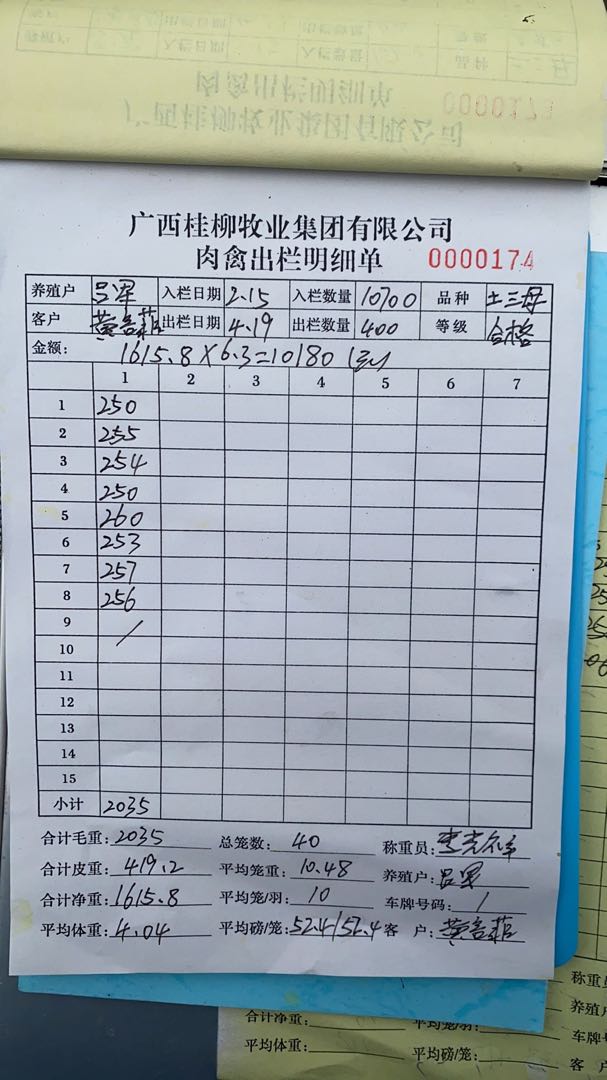 养殖户 入栏日期 入栏数量 品种
肉禽出栏明细单 0000173
广西桂柳牧业集团有限公司
广西桂柳牧业集团有限公司
肉禽出栏明细单 0000174
养殖户 吕军 入栏日期 2.15 入栏数量 10700 品种 土三母
客户 出栏日期 4.19 出栏数量 400 等级 合格
金额: 1615.8×6.3=10180
1 2 3 4 5 6 7
1 250
2 255
3 254
4 250
5 260
6 253
7 257
8 256
9
10
11
12
13
14
15
小计 2035
合计毛重: 2035 总笼数: 40 称重员:
合计皮重: 419.2 平均笼重: 10.48 养殖户: 吕军
合计净重: 1615.8 平均笼/羽: 10 车牌号码: /
平均体重: 4.04 平均磅/笼: 52.4/52.4 客 户:
称重员
养殖户
合计净重: 平均笼/羽: 车牌号
平均体重: 平均磅/笼: 客 户